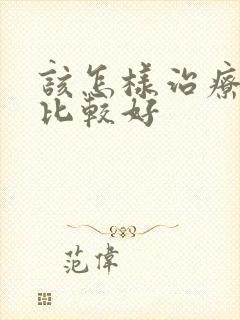 該怎樣治療
比較好
范偉